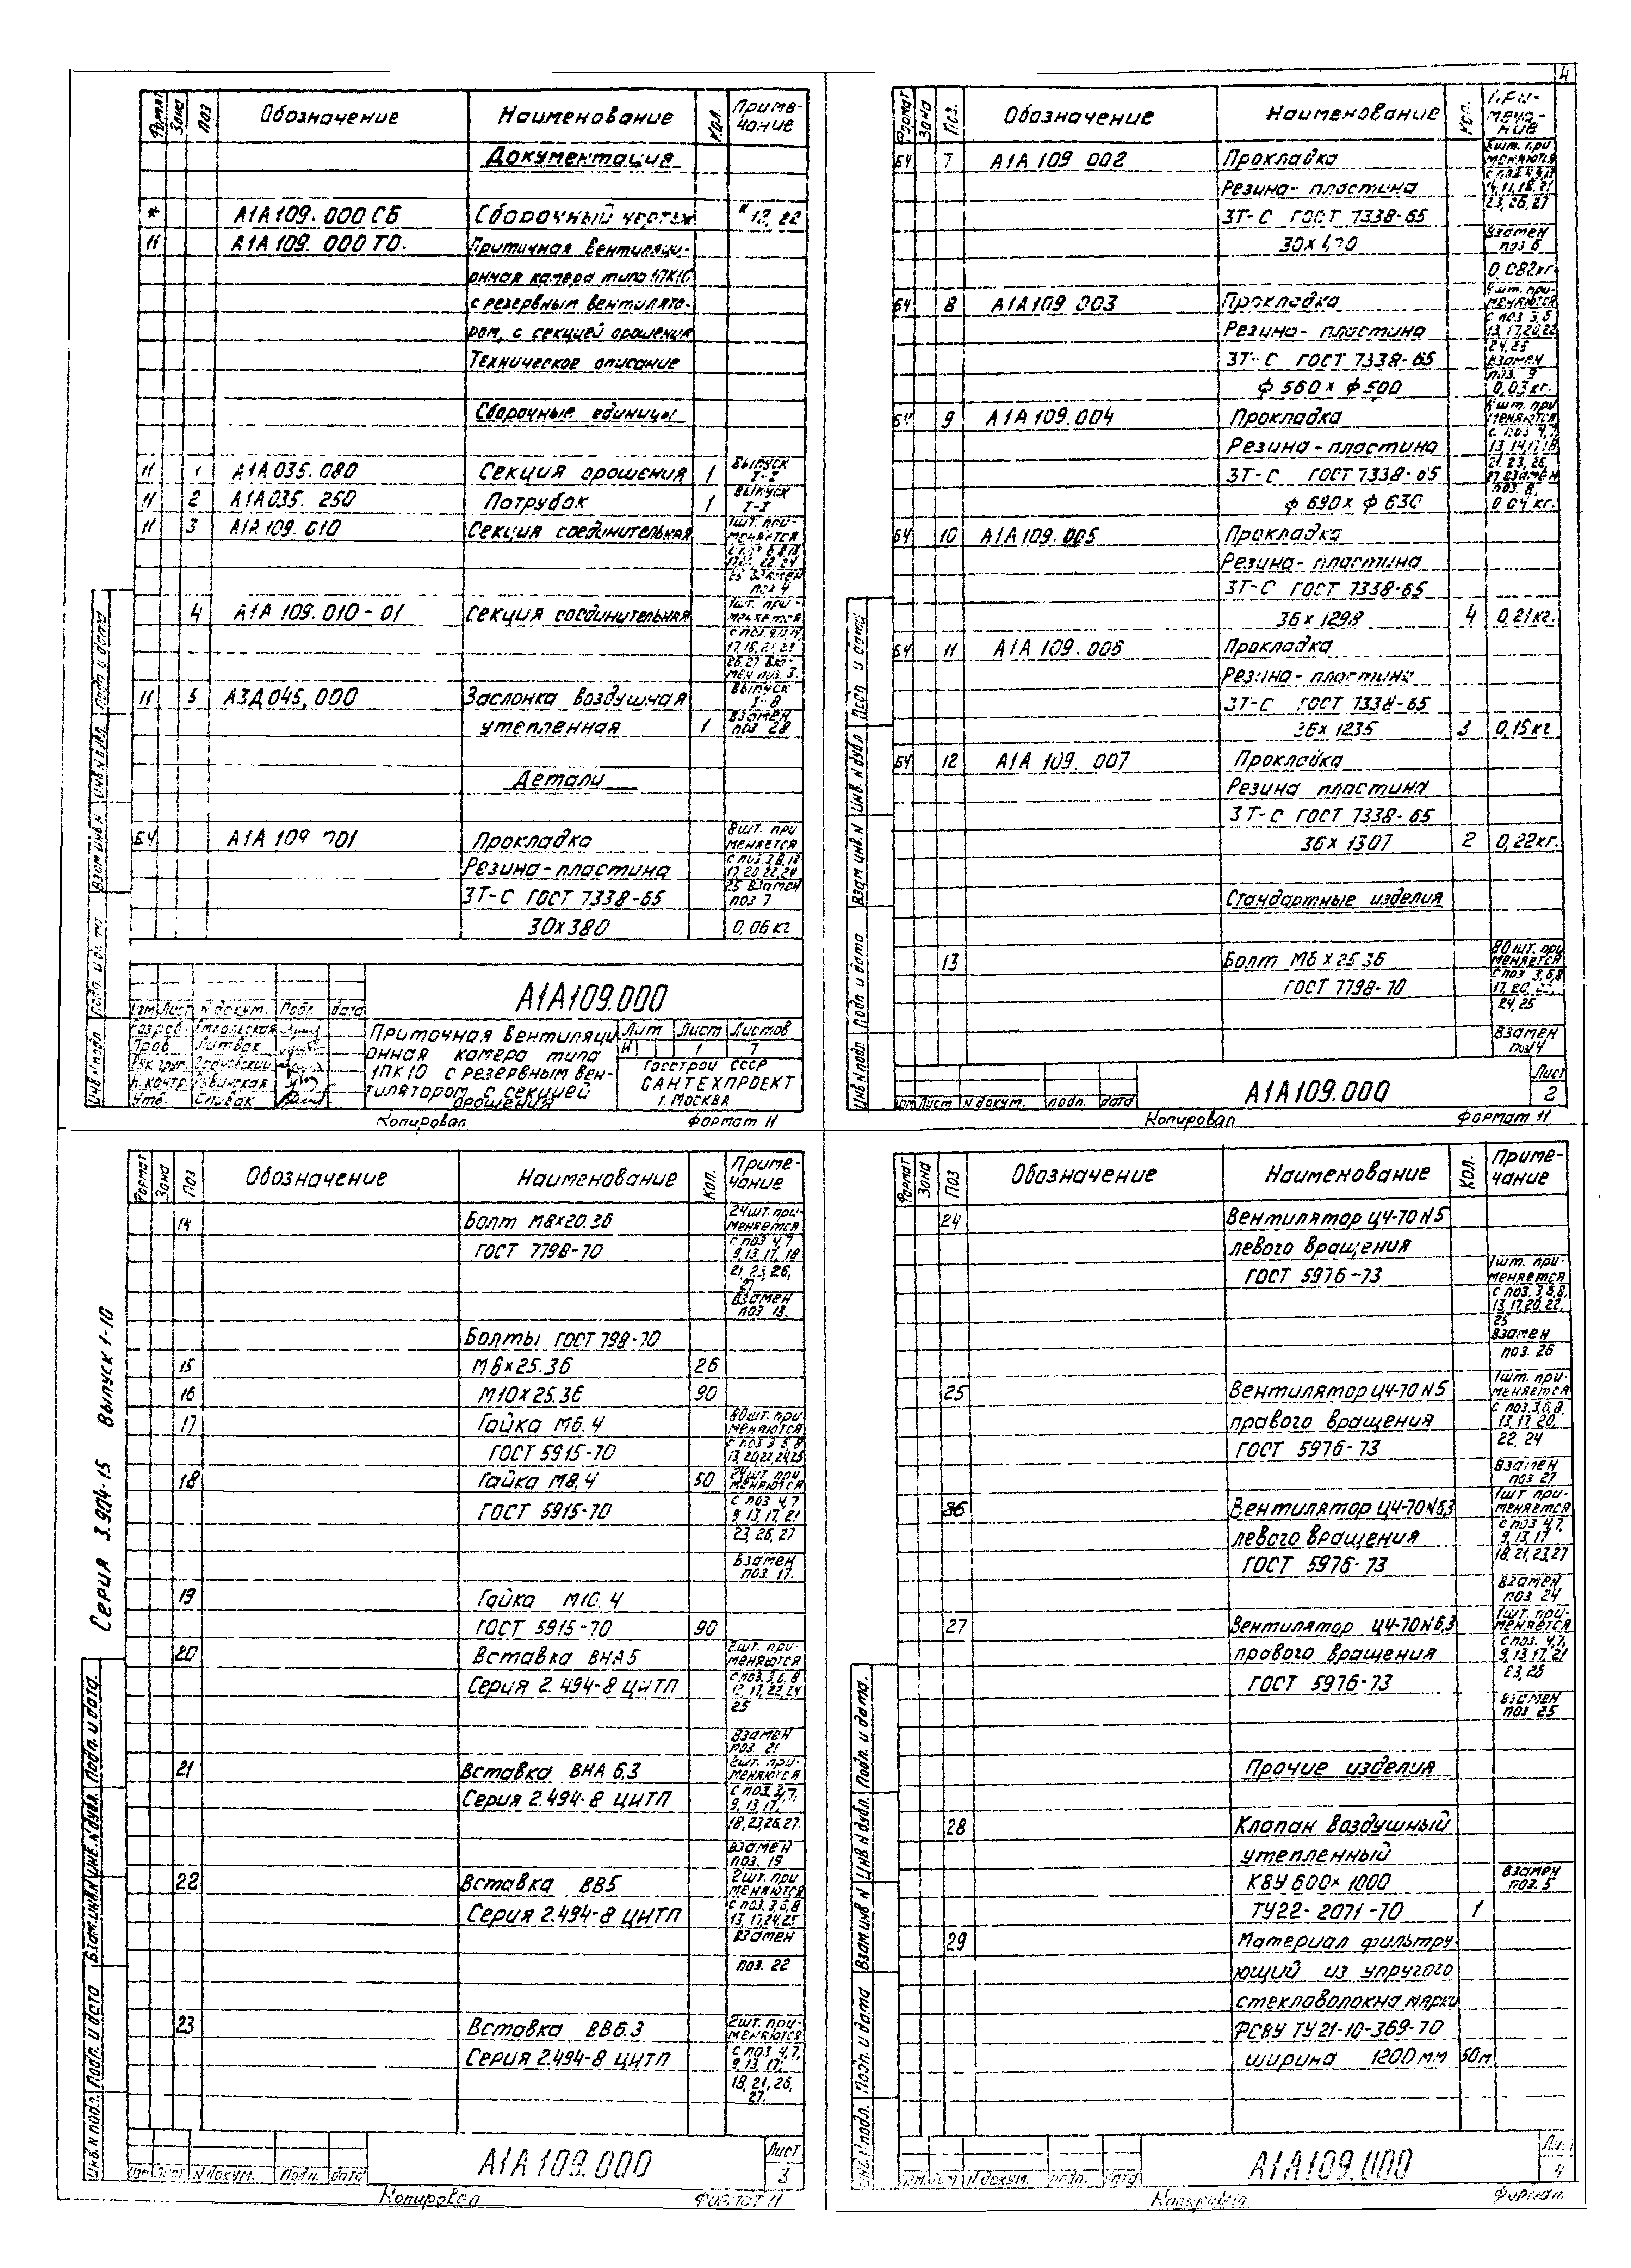 4
Формат Зона Поз Обозначение Наименование Кол. Примечание
Документация
* А1А109.000СБ Сборочный чертеж * 12, 22
11 А1А109.000 ТО. Приточная вентиляци-
онная камера типа 1ПК10
с резервным вентилято-
ром, с секцией орошения
Техническое описание
Сборочные единицы
11 1 А1А035.080 Секция орошения 1 Выпуск I-I
11 2 А1А035. 250 Патрубок 1 Выпуск I-I
11 3 А1А109.010 Секция соединительная 1шт. при-
меняется
поз 4
4 А1А 109.010-01 секция соединительная 1шт. при-
меняется
17, 18, 21, 23
26, 27 Вза-
мен поз. 3.
11 5 А3Д045,000 Заслонка воздушная Выпуск I-8
утепленная 1 Взамен поз 28
Детали
БЧ А1А 109 701 Прокладка 8шт. при
меняется
Резина-пластина с поз. 3,8,13
17, 20, 22, 24
3Т-С ГОСТ 7338-65 25 Взамен
поз 7
30х380 0,06кг
А1А109.000
Изм Лист N докум. Подп. дата
Пров Литвак
Утв. Спивак
Приточная вентиляци
онная камера типа
1ПК10 с резервным вен-
тилятором с секцией
орошения
Лит Лист Листов
И 1 7
Госстрой СССР
САНТЕХПРОЕКТ
г. МОСКВА
Копировал Формат 11
Инв N подл Подп. и дата Взам инв N Инв N дубл. Подп и дата
Формат Зона Поз. Обозначение Наименование Кол. Примечание
БЧ 7 А1А 109 002 Прокладка 8шт. при
меняются
Резина- пластина
23, 26, 27
3Т-С ГОСТ 7338-65
30х470 Взамен
поз 6
0,082кг
БЧ 8 А1А109 003 Прокладка 4шт. при-
меняются
Резина- пластина с поз 3,6
13, 17,20,22
3Т-С ГОСТ 7338-65 24,25
Взамен
поз. 9
ф 560 х ф500 0,03кг.
БЧ 9 А1А109.004 Прокладка 4шт. при
меняются
Резина-пластина с поз 4,7
13, 14,17,18
3Т-С ГОСТ 7338-65 21, 23, 26,
27 Взамен
поз. 8,
ф 690х ф 630 0 04 кг.
БЧ 10 А1А109.005 Прокладка
Резина- пластина
3Т-С ГОСТ 7338-65
36 х 1298 4 0,21кг.
БЧ 11 А1А 109.006 Прокладка
Резина-пластина
3Т-С ГОСТ 7338-65
36х 1235 3 0,15кг
БЧ 12 А1А 109. 007 Прокладка
Резина пластина
3Т-С ГОСТ 7338-65
36х 1307 2 0,22кг.
Стандартные изделия
13 Болт М6 х 25.36 80 шт. при
меняется
ГОСТ 7798-70 с поз 3,6,8
17, 20, 22,
24, 25
Взамен
поз14
А1А109.000
Лист
2
Изм Лист N докум. подп. дата
Копировал Формат 11
Инв N подл Подп и дата Взам инв. N Инв. N дубл Подп и дата
Серия 3.904-15 Выпуск 1-10
Формат Зона Поз Обозначение Наименование Кол. Примечание
14 Болт М8х20.36 24шт. при-
меняется
ГОСТ 7798-70 с поз 4,7
9, 13, 17, 18
21, 23, 26,
27
Взамен
поз 13.
Болты ГОСТ 798-70
15 М8х25.36 26
16 М10х25.36 90
17 Гайка М6.4 80шт. при
меняются
ГОСТ 5915-70
13, 20,22,24,25
18 Гайка М8.4 50 24шт. при
меняются
ГОСТ 5915-70 с поз 4,7
9, 13, 17, 21
23, 26, 27
Взамен
поз 17.
19 Гайка М10.4
ГОСТ 5915-70 90
20 Вставка ВНА5 2шт. при-
меняются
Серия 2.494-8 ЦИТП с поз. 3,6,8
17, 22, 24
25
Взамен
поз. 21
21 Вставка ВНА 6,3 2шт. при-
меняются
Серия 2.494-8 ЦИТП
9, 13, 17,
18,23,26,27.
Взамен
поз. 19
22 Вставка ВВ5 2шт. при
меняются
Серия 2.494-8 ЦИТП с поз. 3,6,8
13, 17,24,25
Взамен
поз. 22
23 Вставка ВВ6.3 2шт. при-
меняются
Серия 2.494-8 ЦИТП с поз 4,7,
9, 13, 17,
18, 21, 26,
27.
А1А109.000
Лист
3
N докум. Подп. дата
Копировал Формат 11
Инв. N подл. Подп. и дата Взам.инв.N Инв. N дубл. Подп. и дата.
Формат Зона Поз. Обозначение Наименование Кол. Примечание
24 Вентилятор Ц4-70 N5
левого вращения
ГОСТ 5976-73 1шт. при-
меняется
с поз. 3,6,8,
13, 17,20,22,
25
Взамен
поз. 26
25 Вентилятор Ц4-70 N5 1шт. при-
меняется
правого вращения с поз. 3,6,8,
13, 17, 20,
ГОСТ 5976-73 22, 24
Взамен
поз 27
26 Вентилятор Ц4-70 N6,3 1шт при-
меняется
левого вращения с поз 4,7,
9, 13, 17
ГОСТ 5976-73 18, 21, 23,27
Взамен
поз. 24
27 Вентилятор Ц4-70 N6,3 1шт. при-
меняется
правого вращения с поз. 4,7,
9, 13, 17, 21
ГОСТ 5976-73 23, 26
Взамен
поз 25
Прочие изделия
28 Клапан воздушный
утепленный
КВУ 600х 1000 Взамен
поз. 5
ТУ22-2071-70 1
29 Материал фильтру-
ющий из упругого
стекловолокна марки
ФСВУ ТУ 21-10-369-70
ширина 1200 мм 50м
А1А109.000
4
N докум. подп. дата
Копировал Формат
подл. Подп. и дата Взам.инв N Инв N дубл. Подп. и дата.